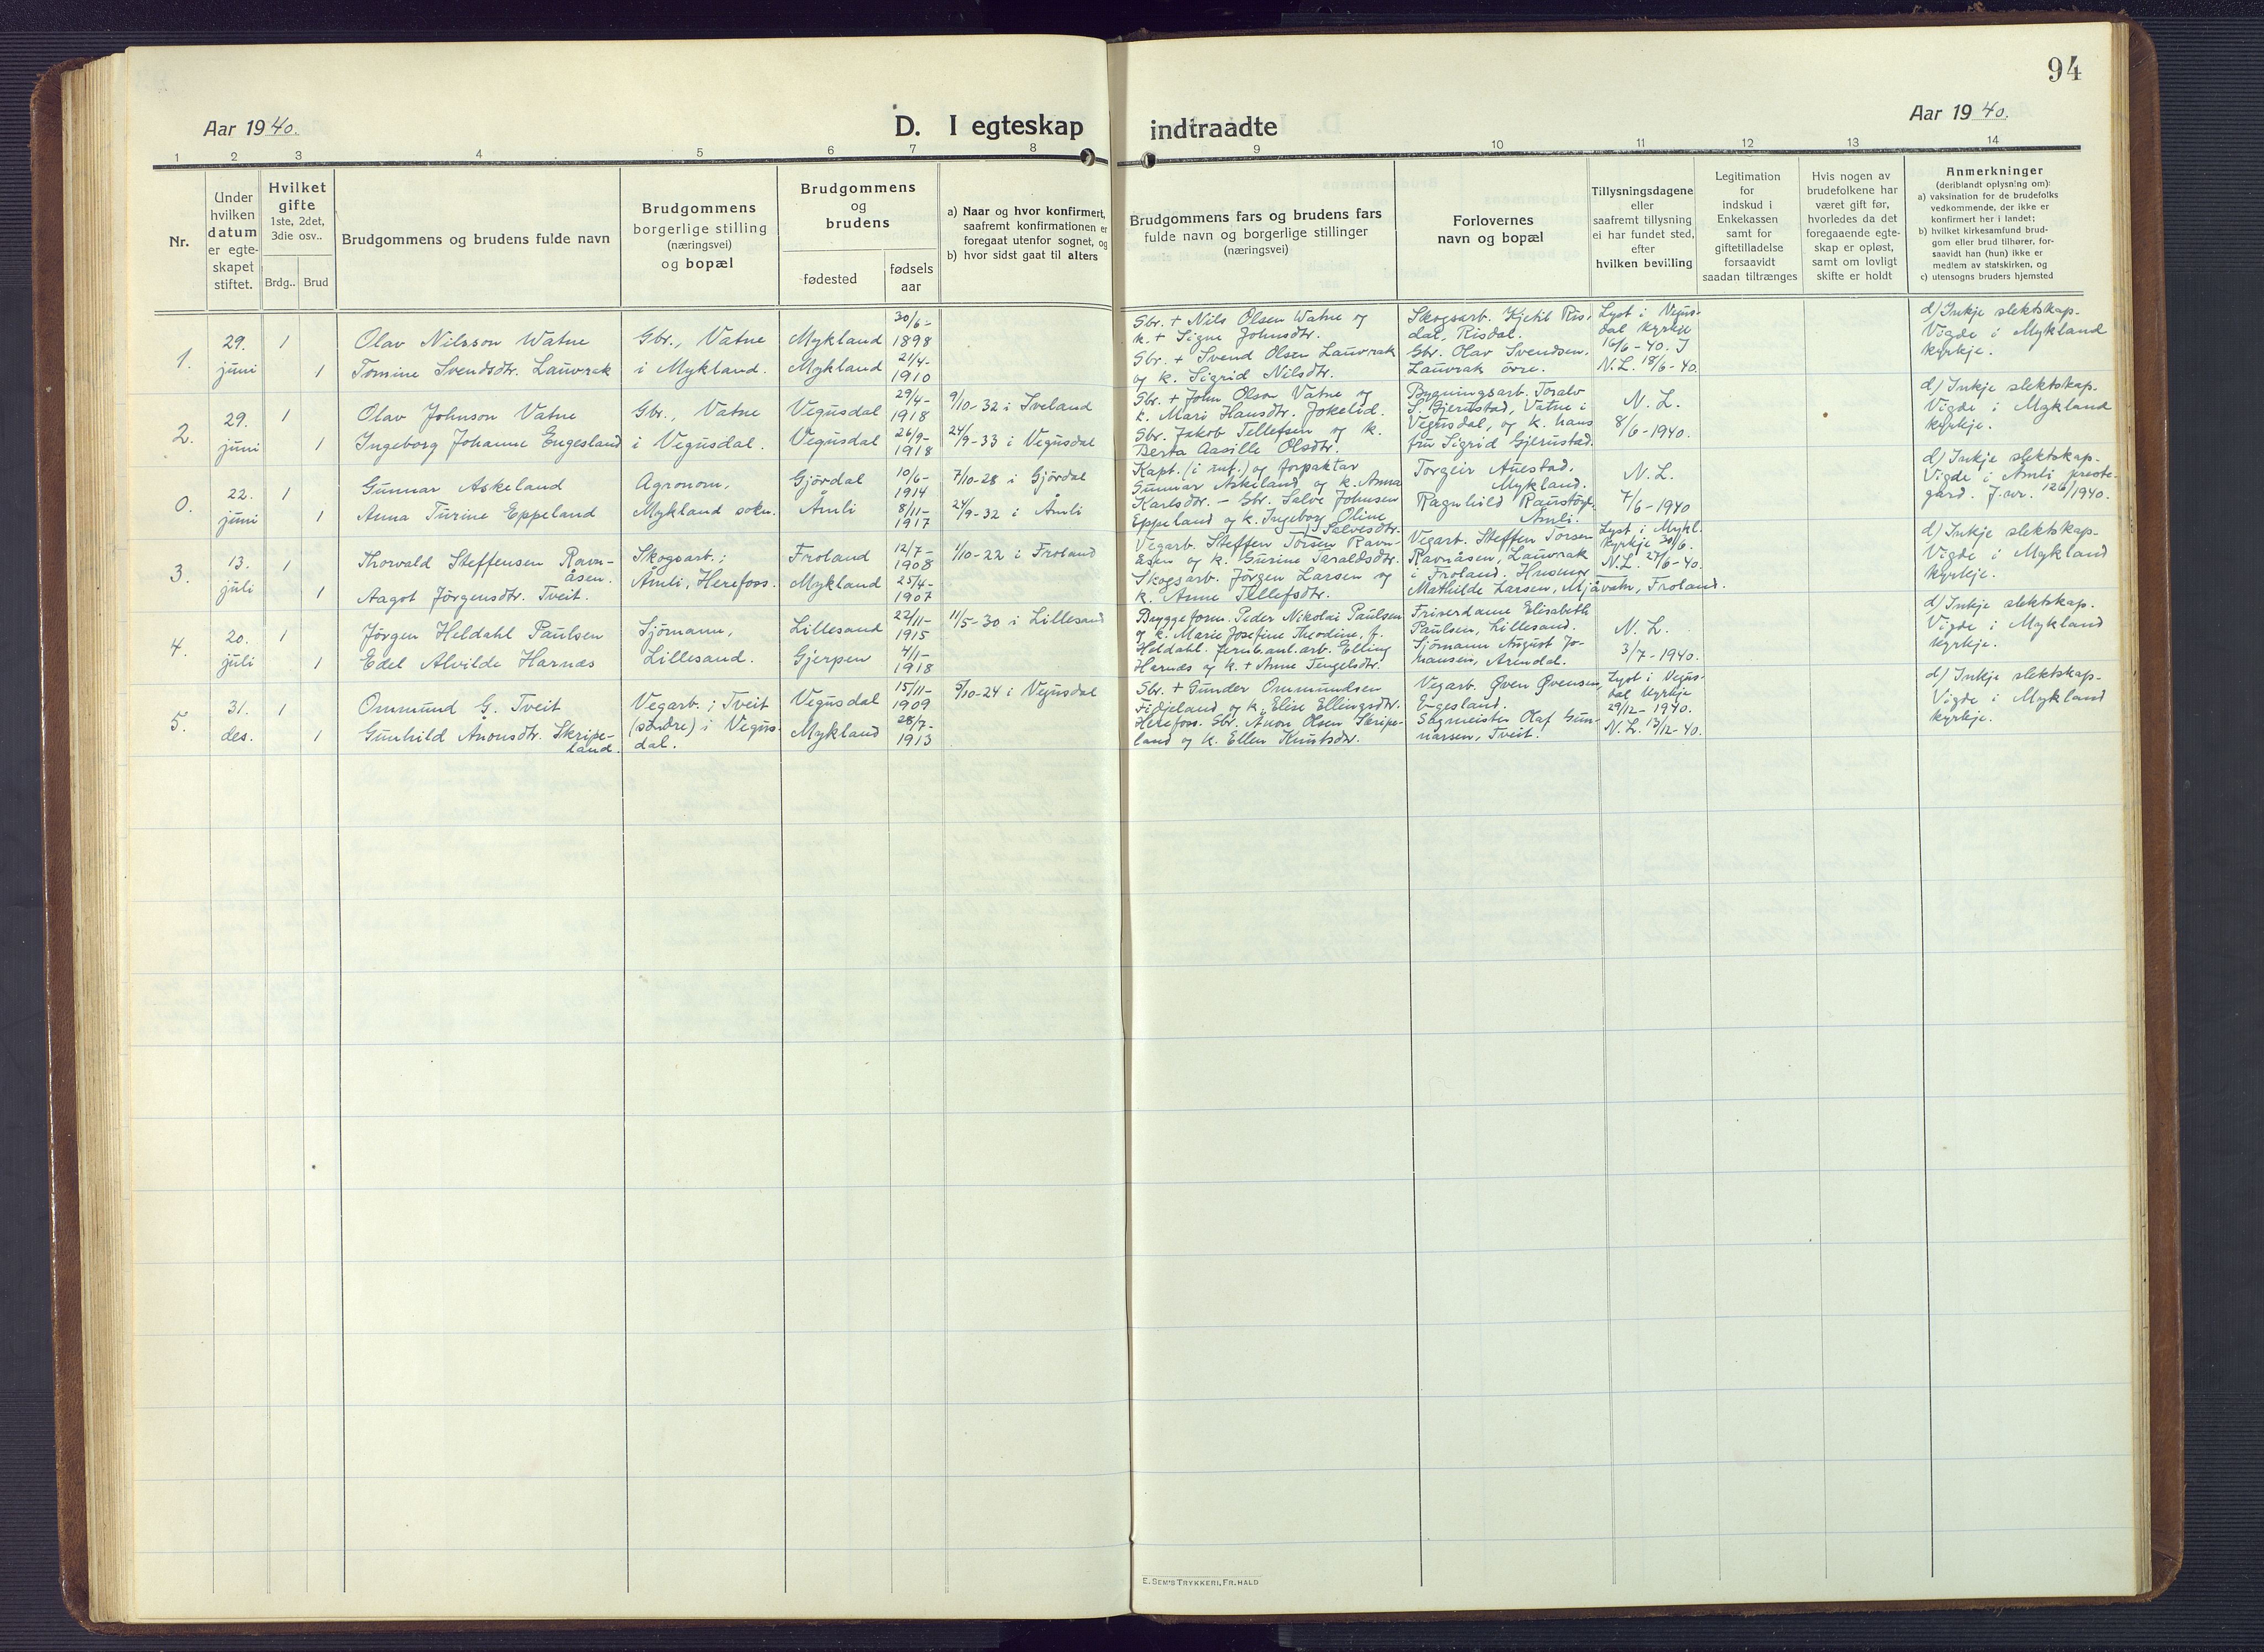 94
Aar 1940.
D. I egteskap indtraadte
Aar 1940.
1 2 3 4 5 6 7 8 9 10 11 12 13 14
Nr.
Under
hvilken
datum
er egte-
skapet
stiftet.
Hvilket
gifte
1ste, 2det,
3die osv..
Brdg..
Brud
Brudgommens og brudens fulde navn
Brudgommens
borgerlige stilling
(næringsvei)
og bopæl
Brudgommens
og
brudens
fødested
fødsels
aar
a) Naar og hvor konfirmert,
saafremt konfirmationen er
foregaat utenfor sognet, og
b) hvor sidst gaat til alters
Brudgommens fars og brudens fars
fulde navn og borgerlige stillinger
(næringsvei)
Forlovernes
navn og bopæl
Tillysningsdagene
eller
saafremt tillysning
ei har fundet sted,
efter
hvilken bevilling
Legitimation
for
indskud i
Enkekassen
samt for
giftetilladelse
forsaavidt
saadan tiltrænges
Hvis nogen av
brudefolkene har
været gift før,
hvorledes da det
foregaaende egte-
skap er opløst,
samt om lovligt
skifte er holdt
Anmerkninger
(deriblandt oplysning om):
a) vaksination for de brudefolks
vedkommende, der ikke er
konfirmert her i landet;
b) hvilket kirkesamfund brud-
gom eller brud tilhører, for-
saavidt han (hun) ikke er
medlem av statskirken, og
c) utensogns bruders hjemsted
1.
29.
juni
1
1
Olav Nilsson Watne
Tomine Svendsdtr. Lauvrak
Gbr., Vatne
i Mykland.
Mykland
Mykland
30/6-
1898
21/4-
1910
Gbr. + Nils Olsen Watne og
k. + Signe Johnsdtr.
Gbr. + Svend Olsen Lauvrak
og k. Sigrid Nilsdtr.
Skogsarb. Kjetil Ris-
dal, Risdal.
Gbr. Olav Svendsen.
Lauvrak övre.
Lyst i Vegus-
dal kyrkje
16/6-40. J
N.L. 18/6-40.
d) Inkje slektskap.
Vigde i Mykland
kyrkje.
2.
29.
juni
1
1
Olav Johnson Vatne
Ingeborg Johanne Engesland
Gbr., Vatne
i Vegusdal.
Vegusdal
Vegusdal
29/4-
1918
26/9-
1918
9/10-32 i Iveland
24/9-33 i Vegusdal
Gbr. + John Olson Vatne og
k. Mari Hansdtr. Jokelid.
Gbr. Jakob Tellefsen og k.
Berta Aasille Olsdtr.
Bygningsarb. Toralv
S. Gjerustad, Vatne i
Vegusdal, og k. hans
fru Sigrid Gjerustad.
N. L.
8/6-1940.
d) Inkje slektskap.
Vigde i Mykland
kyrkje.
0.
22.
juni
1
1
Gunnar Askeland
Anna Turine Eppeland
Agronom,
Mykland sokn.
Gjördal
Åmli
10/6-
1914
8/11-
1917
7/10-28 i Gjördal
24/9-32 i Åmli
Kapt. (i inf.) og forpaktar
Gunnar Askeland og k. Anna
Karlsdtr. - Gbr. Salve Johnsen
Eppeland og k. Ingeborg Oline
Salvesdtr.
Torgeir Austad.
Mykland.
Ragnhild
Åmli.
N. L.
7/6-1940
d) Inkje slektskap.
Vigde i Åmli preste-
gard. J.nr. 126/1940.
3.
13.
juli
1
1
Thorvald Steffensen Ravn-
åsen.
Aagot Jörgensdtr. Tveit.
Skogsarb.;
Åmli, Herefoss.
Froland
Mykland
12/7-
1908
25/4-
1907
1/10-22 i Froland
Vegarb. Steffen Torsen Ravn-
åsen og k. Gurine Taraldsdtr.
Skogsarb. Jörgen Larsen og
k. Anne Tellefsdtr.
Vegarb. Steffen Torsen
Ravnåsen, Lauvrak
i Froland. Husmor
Mathilde Larsen, Mjåvatn, Froland.
Lyst i Mykl.
kyrkje 30/6.
N.L. 27/6-40.
d) Inkje slektskap.
Vigde i Mykland
kyrkje.
4.
20.
juli
1
1
Jörgen Heldahl Paulsen
Edel Alvilde Harnæs
Sjömann,
Lillesand.
Lillesand
Gjerpen
22/11-
1915
4/1-
1918
11/5-30 i Lillesand
Bryggeform. Peder Nikolai Paulsen
og k. Marie Josefine Theodine, f.
Heldahl. Jernb.anl.arb. Elling
Harnæs og k. + Anne Tengelsdtr.
Friserdame Elisabeth
Paulsen, Lillesand.
Sjömann August Jo-
hansen, Arendal.
N. L.
3/7-1940.
d) Inkje slektskap.
Vigde i Mykland
kyrkje.
5.
31.
des.
1
1
Ommund G. Tveit
Gunhild Ånonsdtr. Skripe-
land.
Vegarb.; Tveit
(söndre) i Vegus-
dal.
Vegusdal
Mykland
15/11-
1909
28/7-
1913
5/10-24 i Vegusdal
Gbr. + Gunder Ommundsen
Fidjeland og k. Elise Ellingsdtr.
Herefoss. Gbr. Ånon Olsen Skripe-
land og k. Ellen Knutsdtr.
Vegarb. Øven Øvensen,
Engesland.
Sagmeister Olaf Gun-
narsen, Tveit.
Lyst i Vegus-
dal kyrkje
29/12-1940.
N.L. 13/12-40.
d) Inkje slektskap.
Vigde i Mykland
kyrkje.
E. SEM'S TRYKKERI, FR.HALD